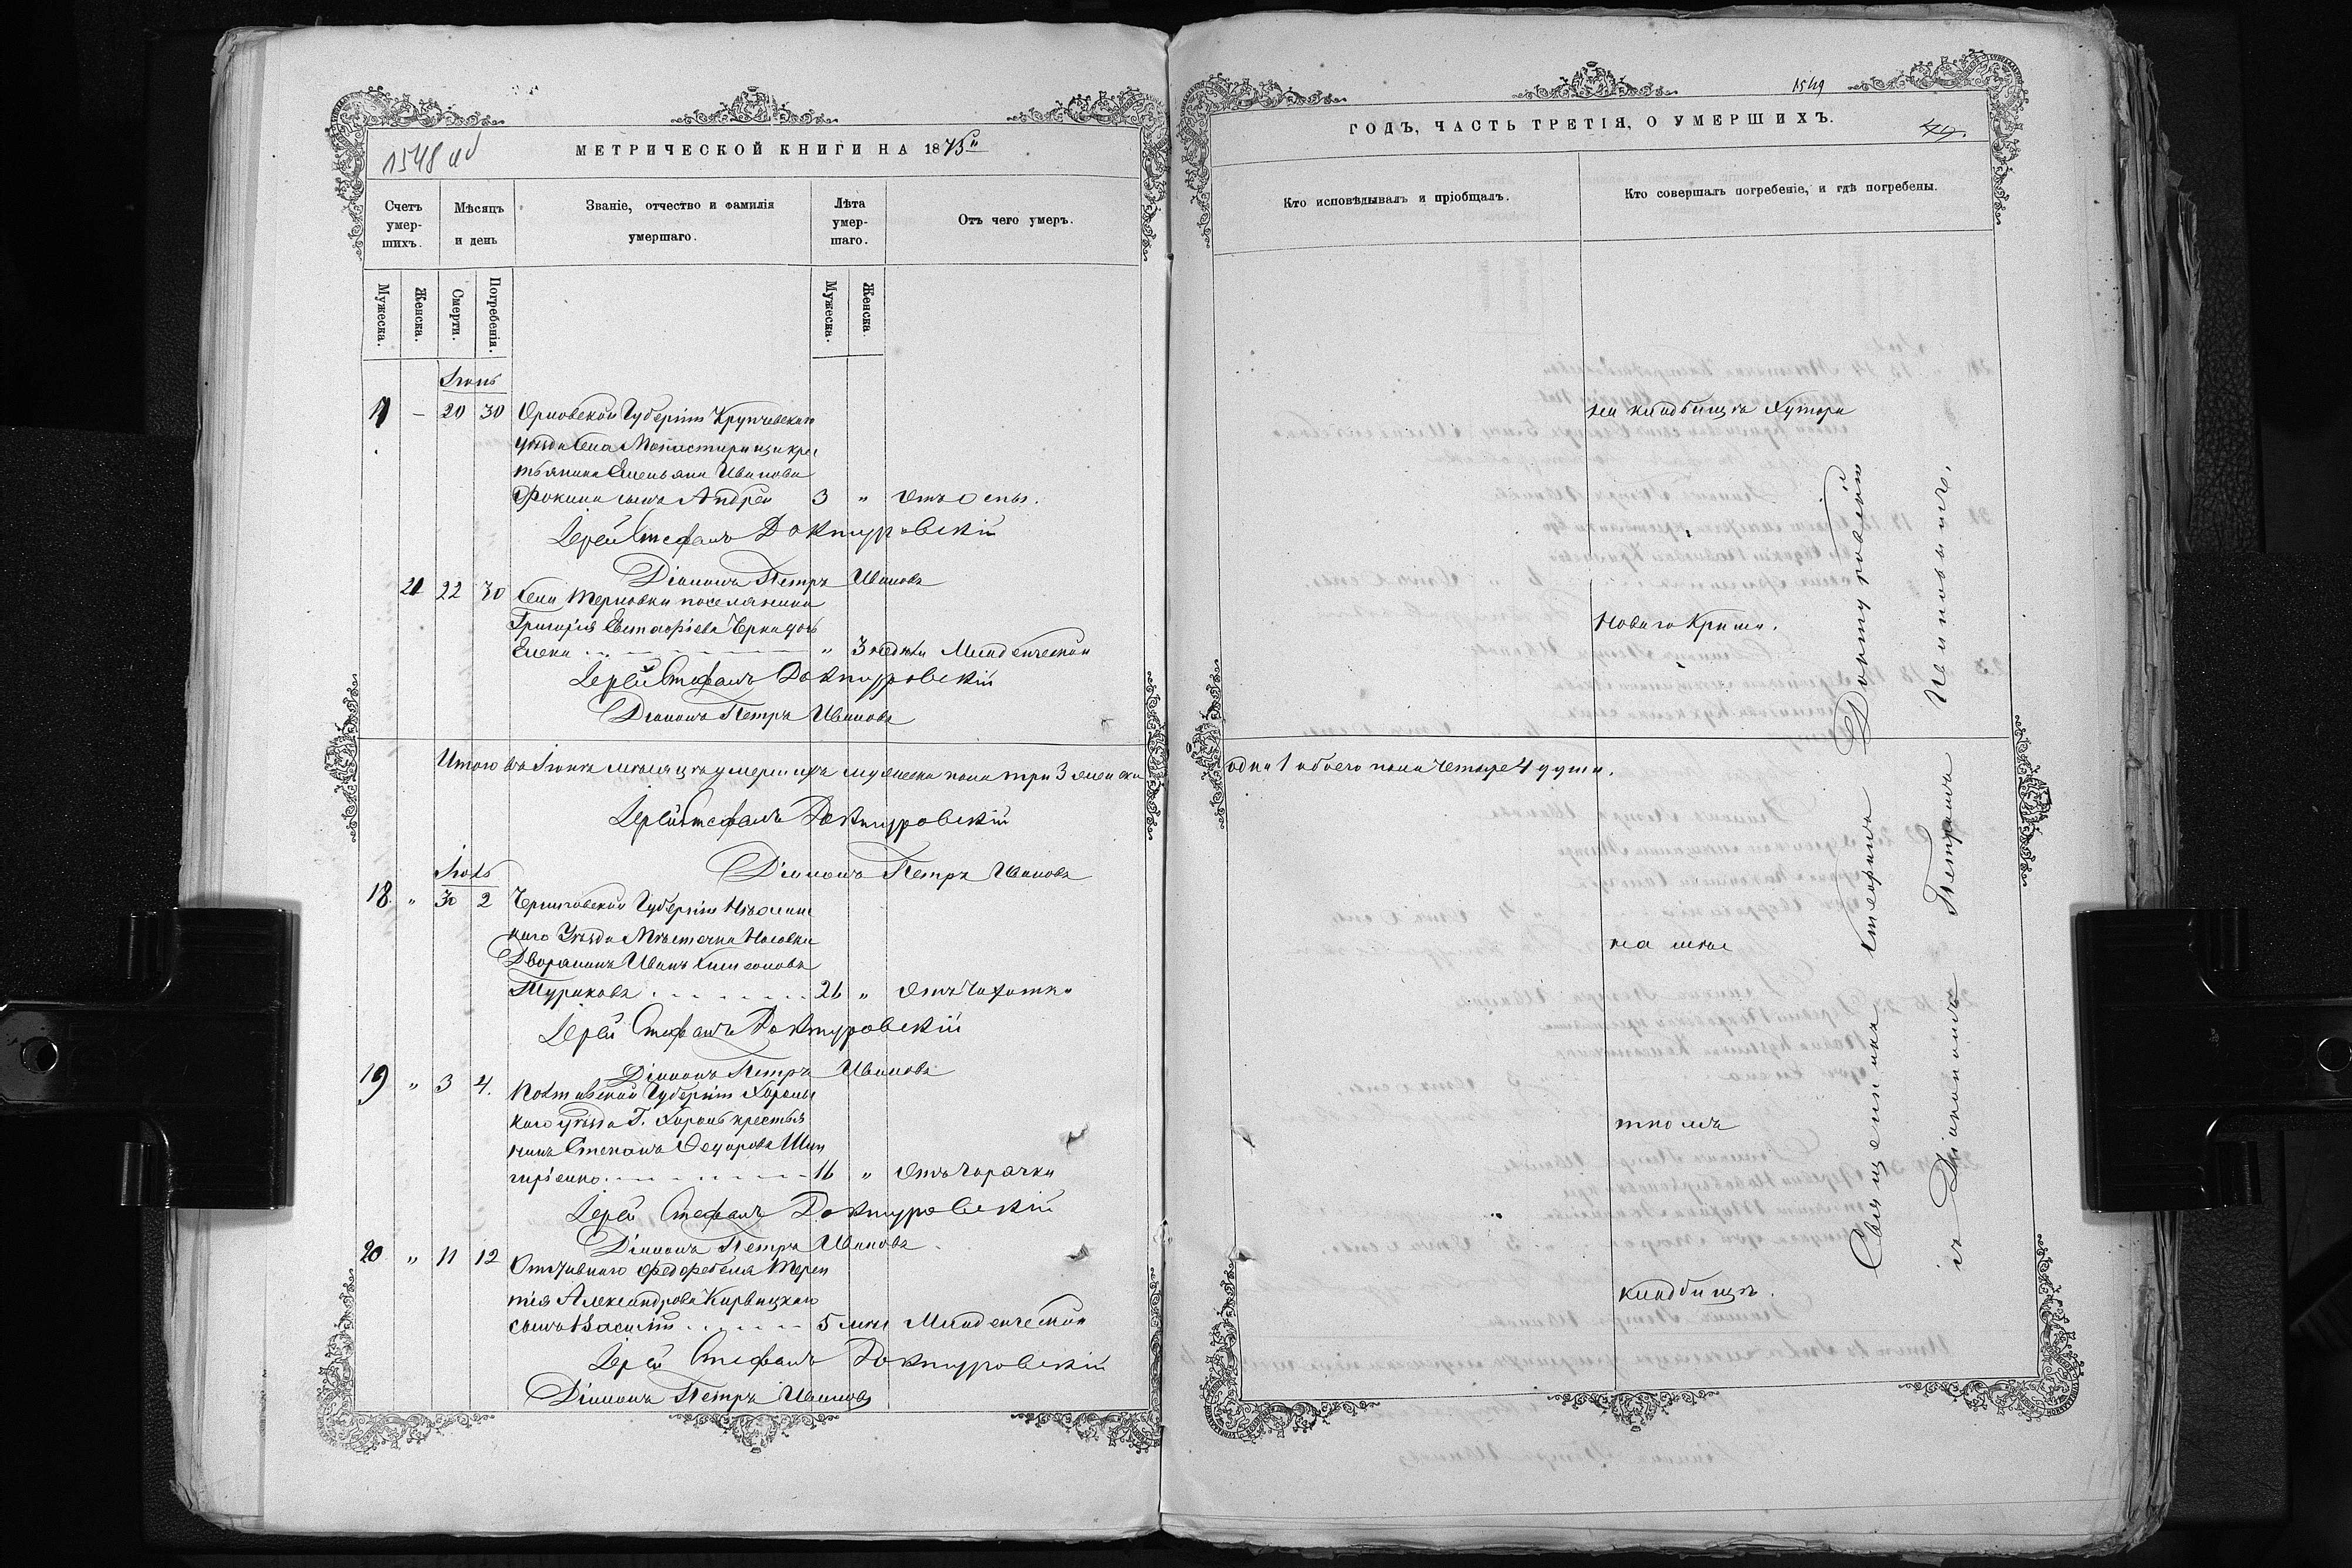 1548 об
МЕТРИЧЕСКОЙ КНИГИ НА 1875й
Счетъ умер-шихъ.
Мѣсяцъ и день
Званіе, отчество и фамилія умершаго.
Лѣта умер-шаго.
Отъ чего умеръ.
Мужеска.
Женска.
Смерти.
Погребенія.
Мужеска.
Женска.
Іюнь
17 – 20 30 Орловской Губерніи
уѣзда села кре
тьянина Емельяна Иванова
Фокина сынъ Андрей 3 " Отъ оспы.
Іерей Стефанъ Доктуровскій
Діаконъ Петръ Ивановъ
21 22 30 Села Терновки поселянина
Григорія Евстафіева дочь
Елена 3 недѣли Младенческой
Іерей Стефанъ Доктуровскій
Діаконъ Петръ Ивановъ
Итого въ Іюнѣ мѣсяцѣ умершихъ мужеска пола три 3 женска
Іерей Стефанъ Доктуровскій
Діаконъ Петръ Ивановъ
Іюль
18. " 30 2 Черниговской Губерніи Нѣжинс
каго Уѣзда Мѣстечка Носовки
Дворянинъ Иванъ
26 " Отъ Чахотки
Іерей Стефанъ Доктуровскій
Діаконъ Петръ Ивановъ
19 " 3 4. Полтавской Губерніи Хорольс
каго уѣзда Г. Хороль крестья
нинъ Степанъ Федоровъ
16 " Отъ Горячки
Іерей Стефанъ Доктуровскій
Діаконъ Петръ Ивановъ
20 " 11 12 Отставнаго фелдфебеля Терен
тія Александрова
сынъ Василій 5 мѣс Младенческой
Іерей Стефанъ Доктуровскій
Діаконъ Петръ Ивановъ
1549
ГОДЪ, ЧАСТЬ ТРЕТІЯ, О УМЕРШИХЪ.
Кто исповѣдывалъ и пріобщалъ.
Кто совершалъ погребеніе, и гдѣ погребены.
на кладбищѣ Хутора
Новаго Крыма.
одна 1 обоего пола четыре 4 души.
на мѣс
тномъ
кладбищѣ.
Священникъ Стефанъ Доктуровскій
съ Діакономъ Петромъ Ивановымъ.